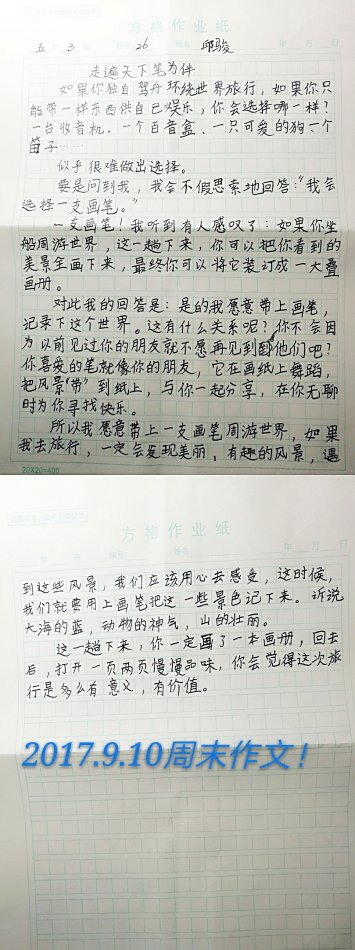 方格作业纸
五 3 班 座号 26 姓名 邱骏 年 月 日
走遍天下笔为伴
如果你独自驾舟环绕世界旅行，如果你只
能带一样东西供自己娱乐，你会选择哪一样？
一台收音机、一个百音盒、一只可爱的狗一个
笛子……
似乎很难做出选择。
要是问到我，我会不假思索地回答：“我会
选择一支画笔。”
一支画笔！我听到有人感叹了：如果你坐
船周游世界，这一趟下来，你可以把你看到的
美景全画下来，最终你可以将它装订成一大叠
画册。
对此我的回答是：是的我愿意带上画笔，
记录下这个世界。这有什么关系呢？你不会因
为以前见过你的朋友就不愿再见到他们吧？
你喜爱的笔就像你的朋友，它在画纸上舞蹈，
把风景“带”到纸上，与你一起分享，在你无聊
时为你寻找快乐。
所以我愿意带上一支画笔周游世界，如果
我去旅行，一定会发现美丽，有趣的风景，遇
20X20=400
方格作业纸
班 座号 姓名 年 月 日
到这些风景，我们应该用心去感受，这时候，
我们就要用上画笔把这一些景色记下来。诉说
大海的蓝，动物的神气，山的壮丽。
这一趟下来，你一定画了一本画册，回去
后，打开一页两页慢慢品味，你会觉得这次旅
行是多么有意义，有价值。
2017.9.10周末作文！